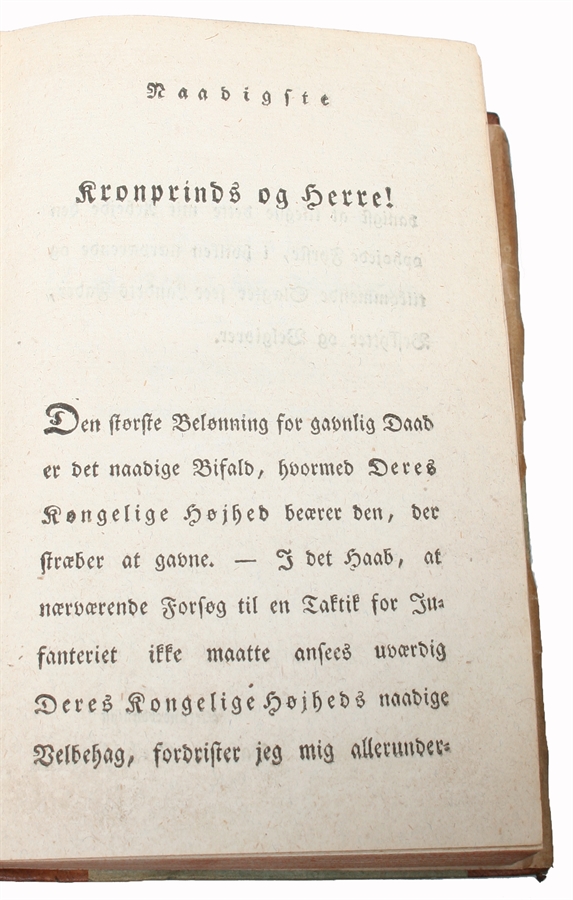 Naadigste
Kronprinds og Herre!
Den største Belønning for gavnlig Daad
er det naadige Bifald, hvormed Deres
Kongelige Højhed beærer den, der
stræber at gavne. — I det Haab, at
nærværende Forsøg til en Taktik for In-
fanteriet ikke maatte ansees uværdig
Deres Kongelige Højheds naadige
Velbehag, fordrister jeg mig allerunder-